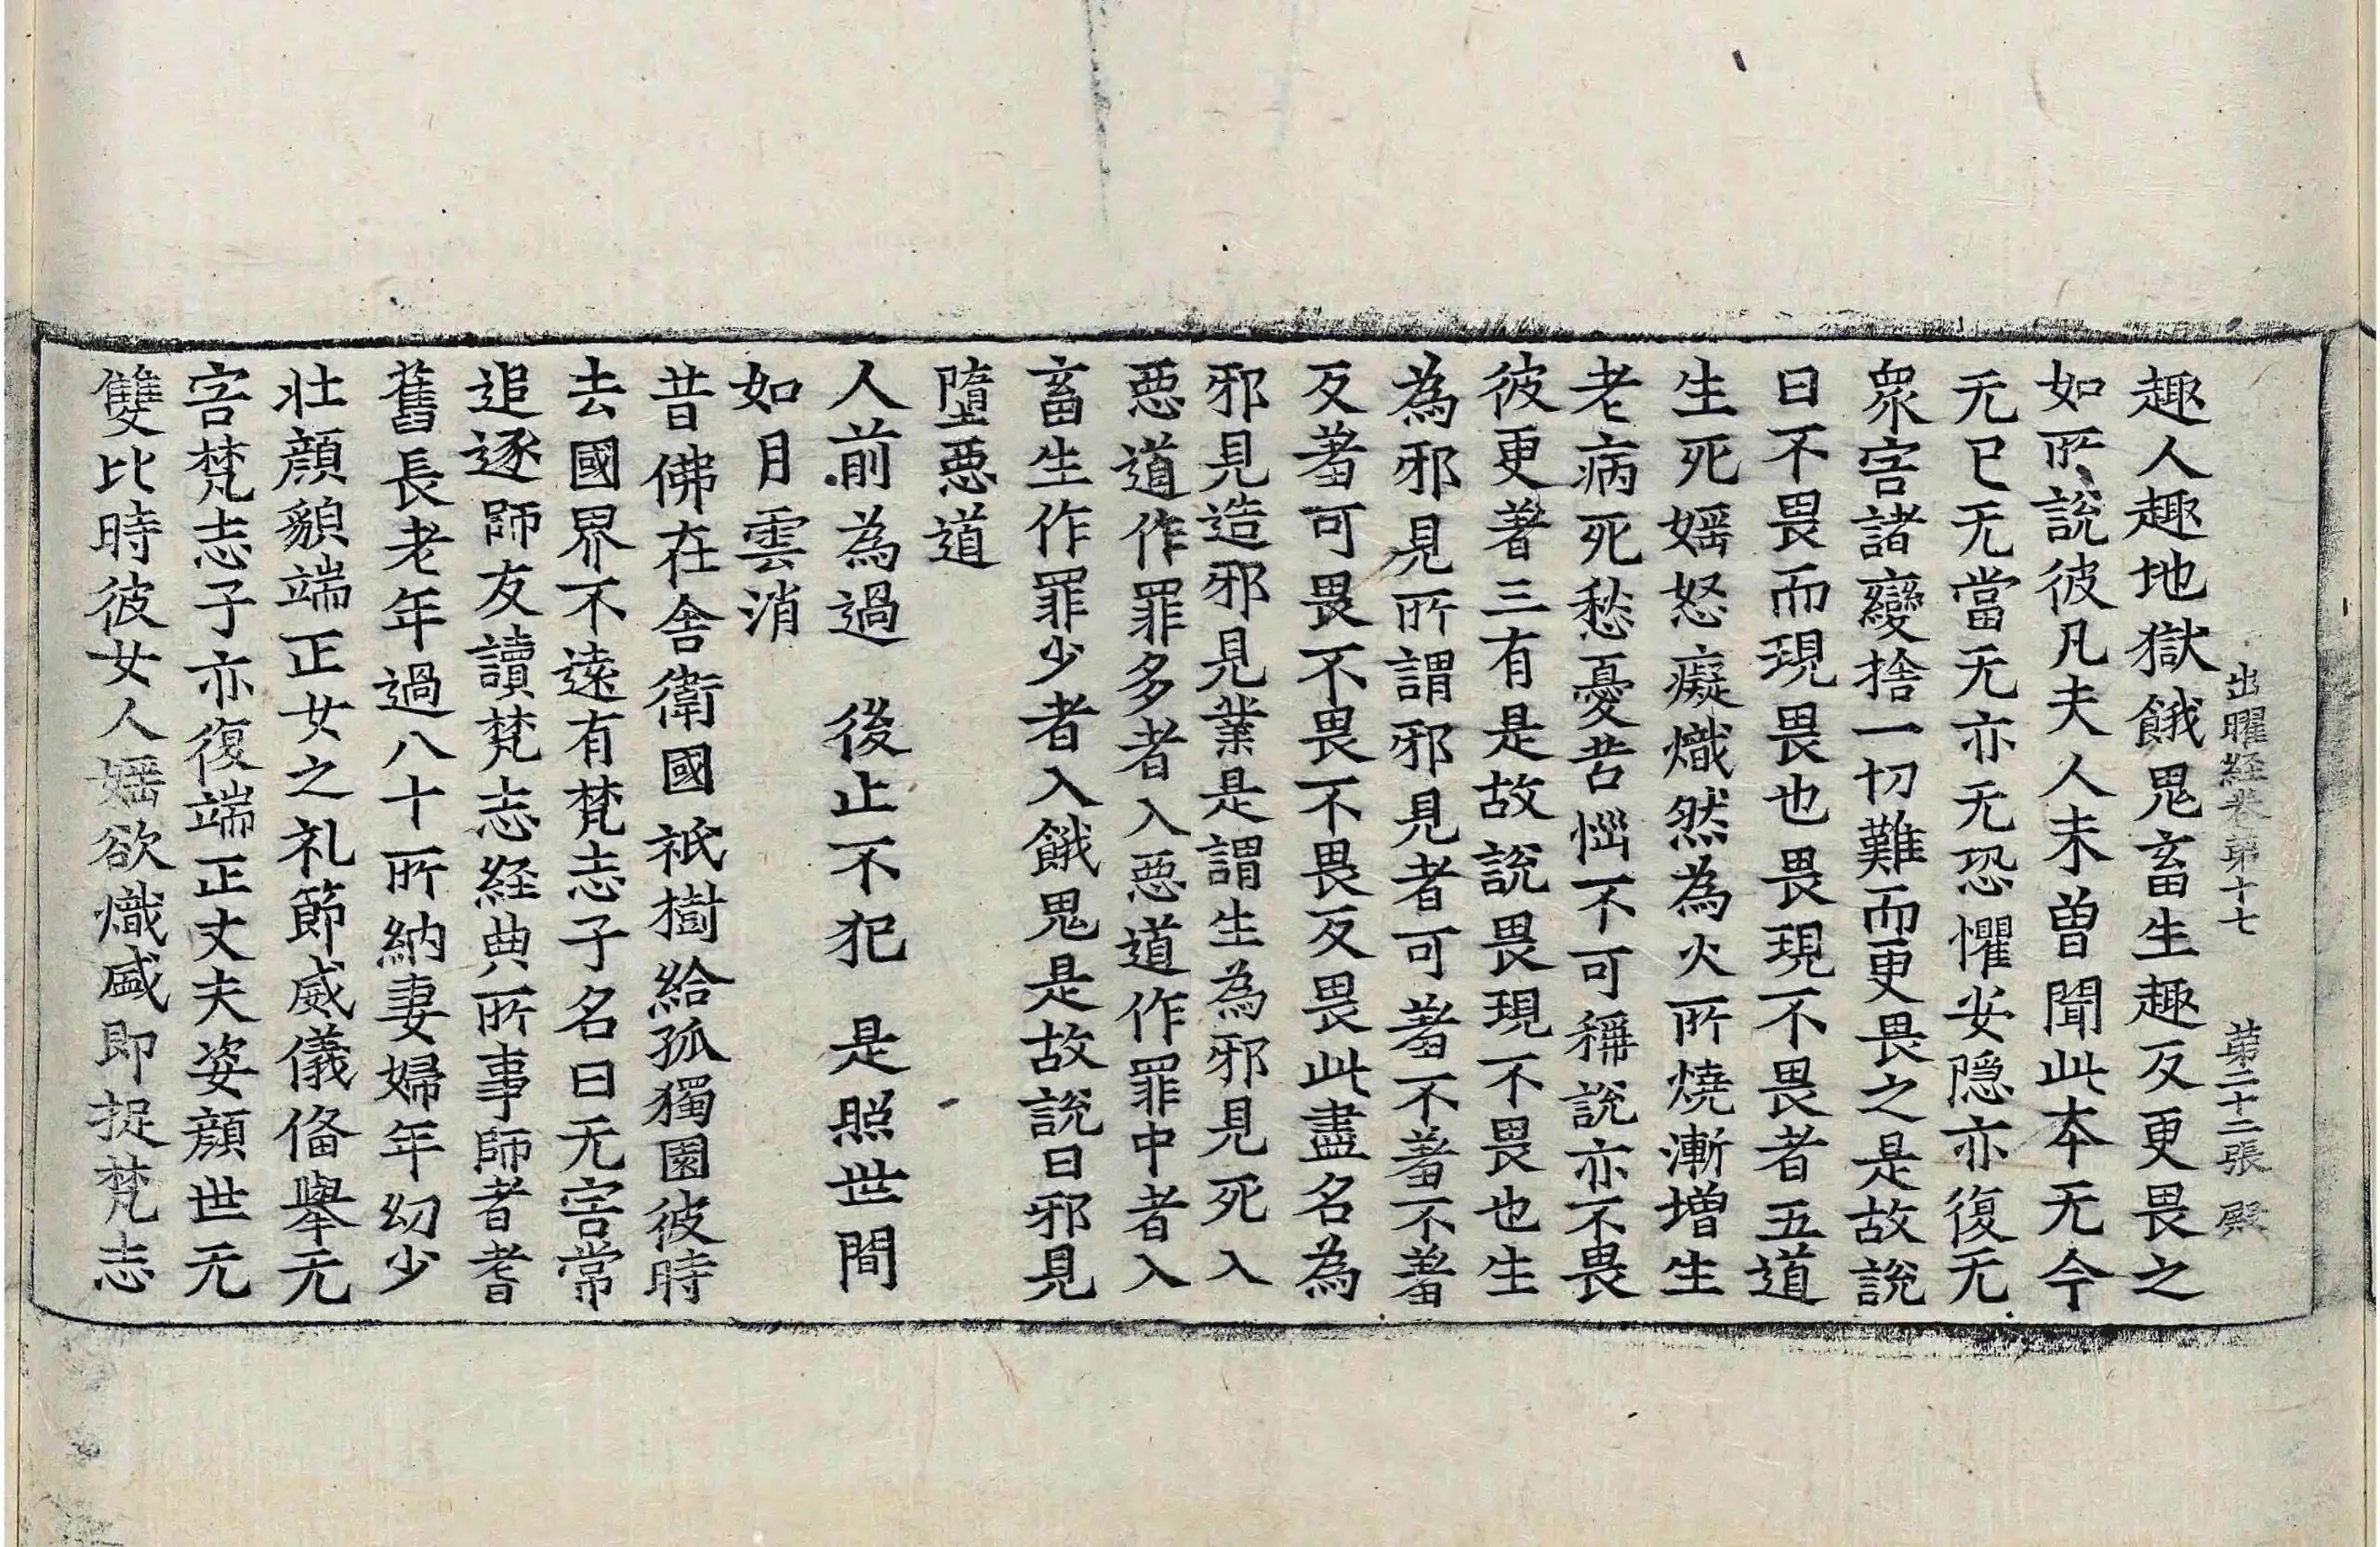 出曜経卷第十七 第二十二張 殿
趣人趣地獄餓鬼畜生趣反更畏之
如所說彼凡夫人未曾聞此本无今
无已无當无亦无恐懼安隐亦復无
衆害諸變捨一切難而更畏之是故說
曰不畏而現畏也畏現不畏者五道
生死婬怒癡熾然為火所燒漸增生
老病死愁憂苦惱不可稱說亦不畏
彼更著三有是故說畏現不畏也生
為邪見所謂邪見者可著不著不著
反著可畏不畏不畏反畏此盡名為
邪見造邪見業是謂生為邪見死入
惡道作罪多者入惡道作罪中者入
畜生作罪少者入餓鬼是故說曰邪見
墮惡道
人前為過 後止不犯 是照世間
如月雲消
昔佛在舍衛國祇樹給孤獨園彼時
去國界不遠有梵志子名曰无害常
追逐師友讀梵志経典所事師者耆
舊長老年過八十所納妻婦年幼少
壯顏貌端正女之礼節威儀俻舉无
害梵志子亦復端正丈夫姿顏世无
雙比時彼女人婬欲熾盛即捉梵志